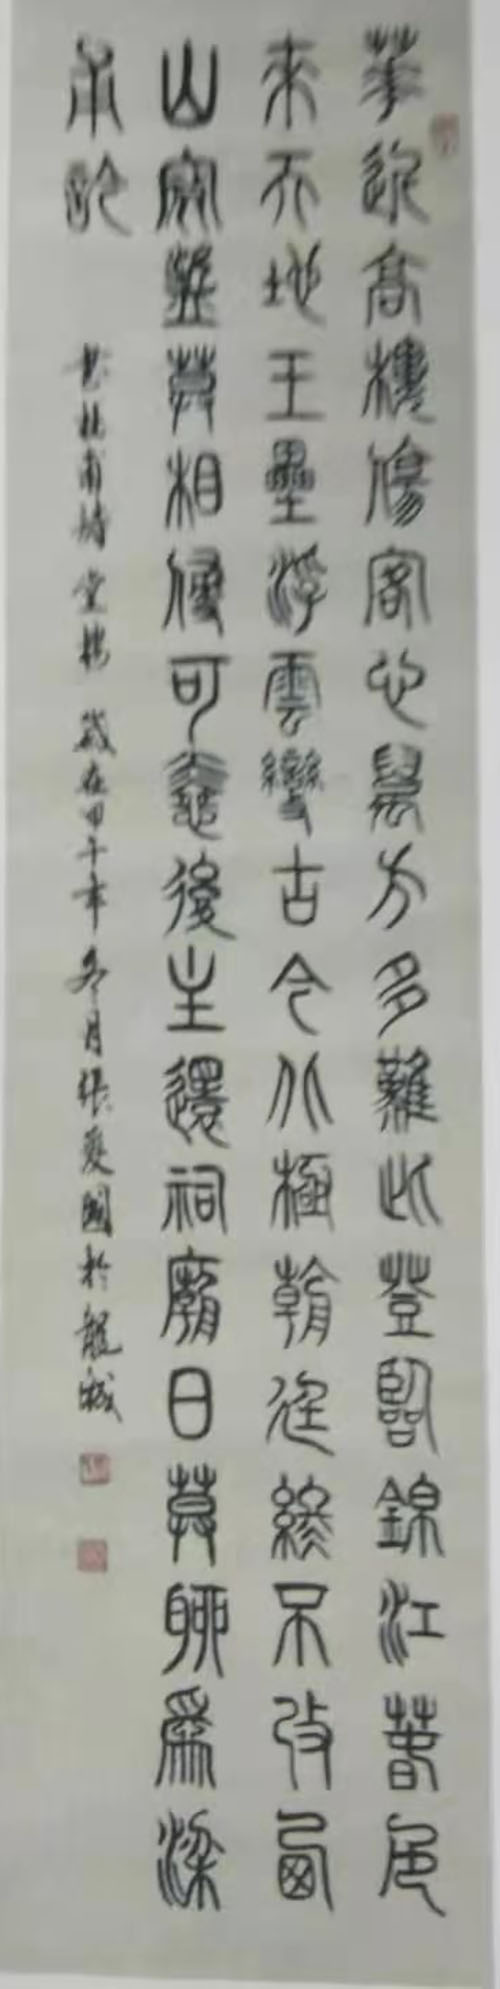 華近高樓傷客心萬方多難此登臨錦江春色
來天地玉壘浮雲變古今北極朝廷終不改西
山寇盜莫相侵可憐後主還祠廟日暮聊爲梁
甫吟
书杜甫诗登楼 歲在甲午年冬月張愛國於龍城